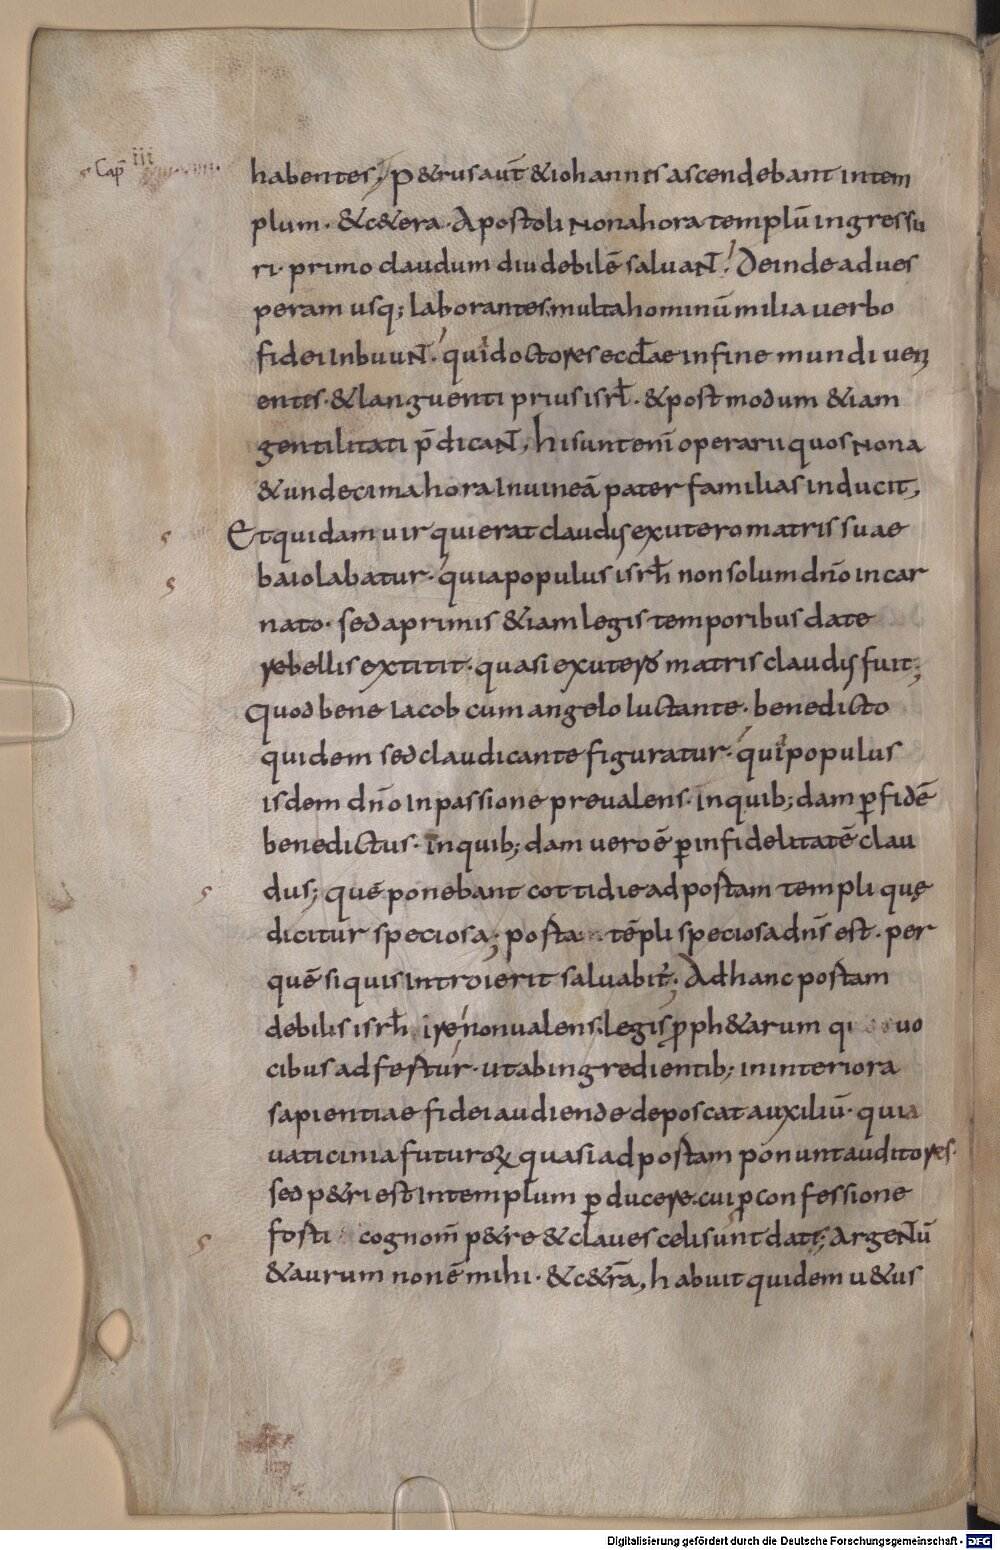 Cap̄ iii
habentes; P&rus aut̄ & iohannes ascendebant in tem
plum · &c&era · Apostoli nona hora templū ingressu
ri · primo claudum diu debilē saluaNT̄ · Deinde ad ues
peram usq; laborantes multa hominū milia uerbo
fidei inbuuNT̄ · qui doctores eccl̄ae in fine mundi ueni
entes · & languenti prius isrl̄ · & postmodum &iam
gentilitati p̄dicaNT̄, hi sunt enī operarii quos nona
& undecima hora in uineā pater familias inducit,
Et quidam uir qui erat claudus ex utero matris suae
baiolabatur · quia populus isrl̄ non solum dn̄o incar
nato · sed a primis &iam legis temporibus date
rebellis extitit · quasi ex utero matris claudus fuit;
Quod bene iacob cum angelo luctante · benedicto
quidem sed claudicante figuratur · qui populus
isdem dn̄o in passione preualens · in quib; dam ꝑ fidē
benedictus · in quib; dam uero ē ꝑ infidelitatē clau
dus; quē ponebant cottidie ad portam templi quę
dicitur speciosa; porta tēpli speciosa dn̄s est · per
quē si quis introierit saluabit̄; Ad hanc portam
debilis isrl̄ ire non ualens legis ꝓph&arum uo
cibus adfertur · ut ab ingredientib; in interiora
sapientiae fidei audiende deposcat auxiliū · quia
uaticinia futuroꝝ quasi ad portam ponunt auditores ·
sed p&ri est in templum ꝑducere cui ꝓ confessione
forti cognom̄ p&re & claues celi sunt dati; ArgeNTū
& aurum non ē mihi · &c&r̄a, habuit quidem u&us
Digitalisierung gefördert durch die Deutsche Forschungsgemeinschaft - DFG